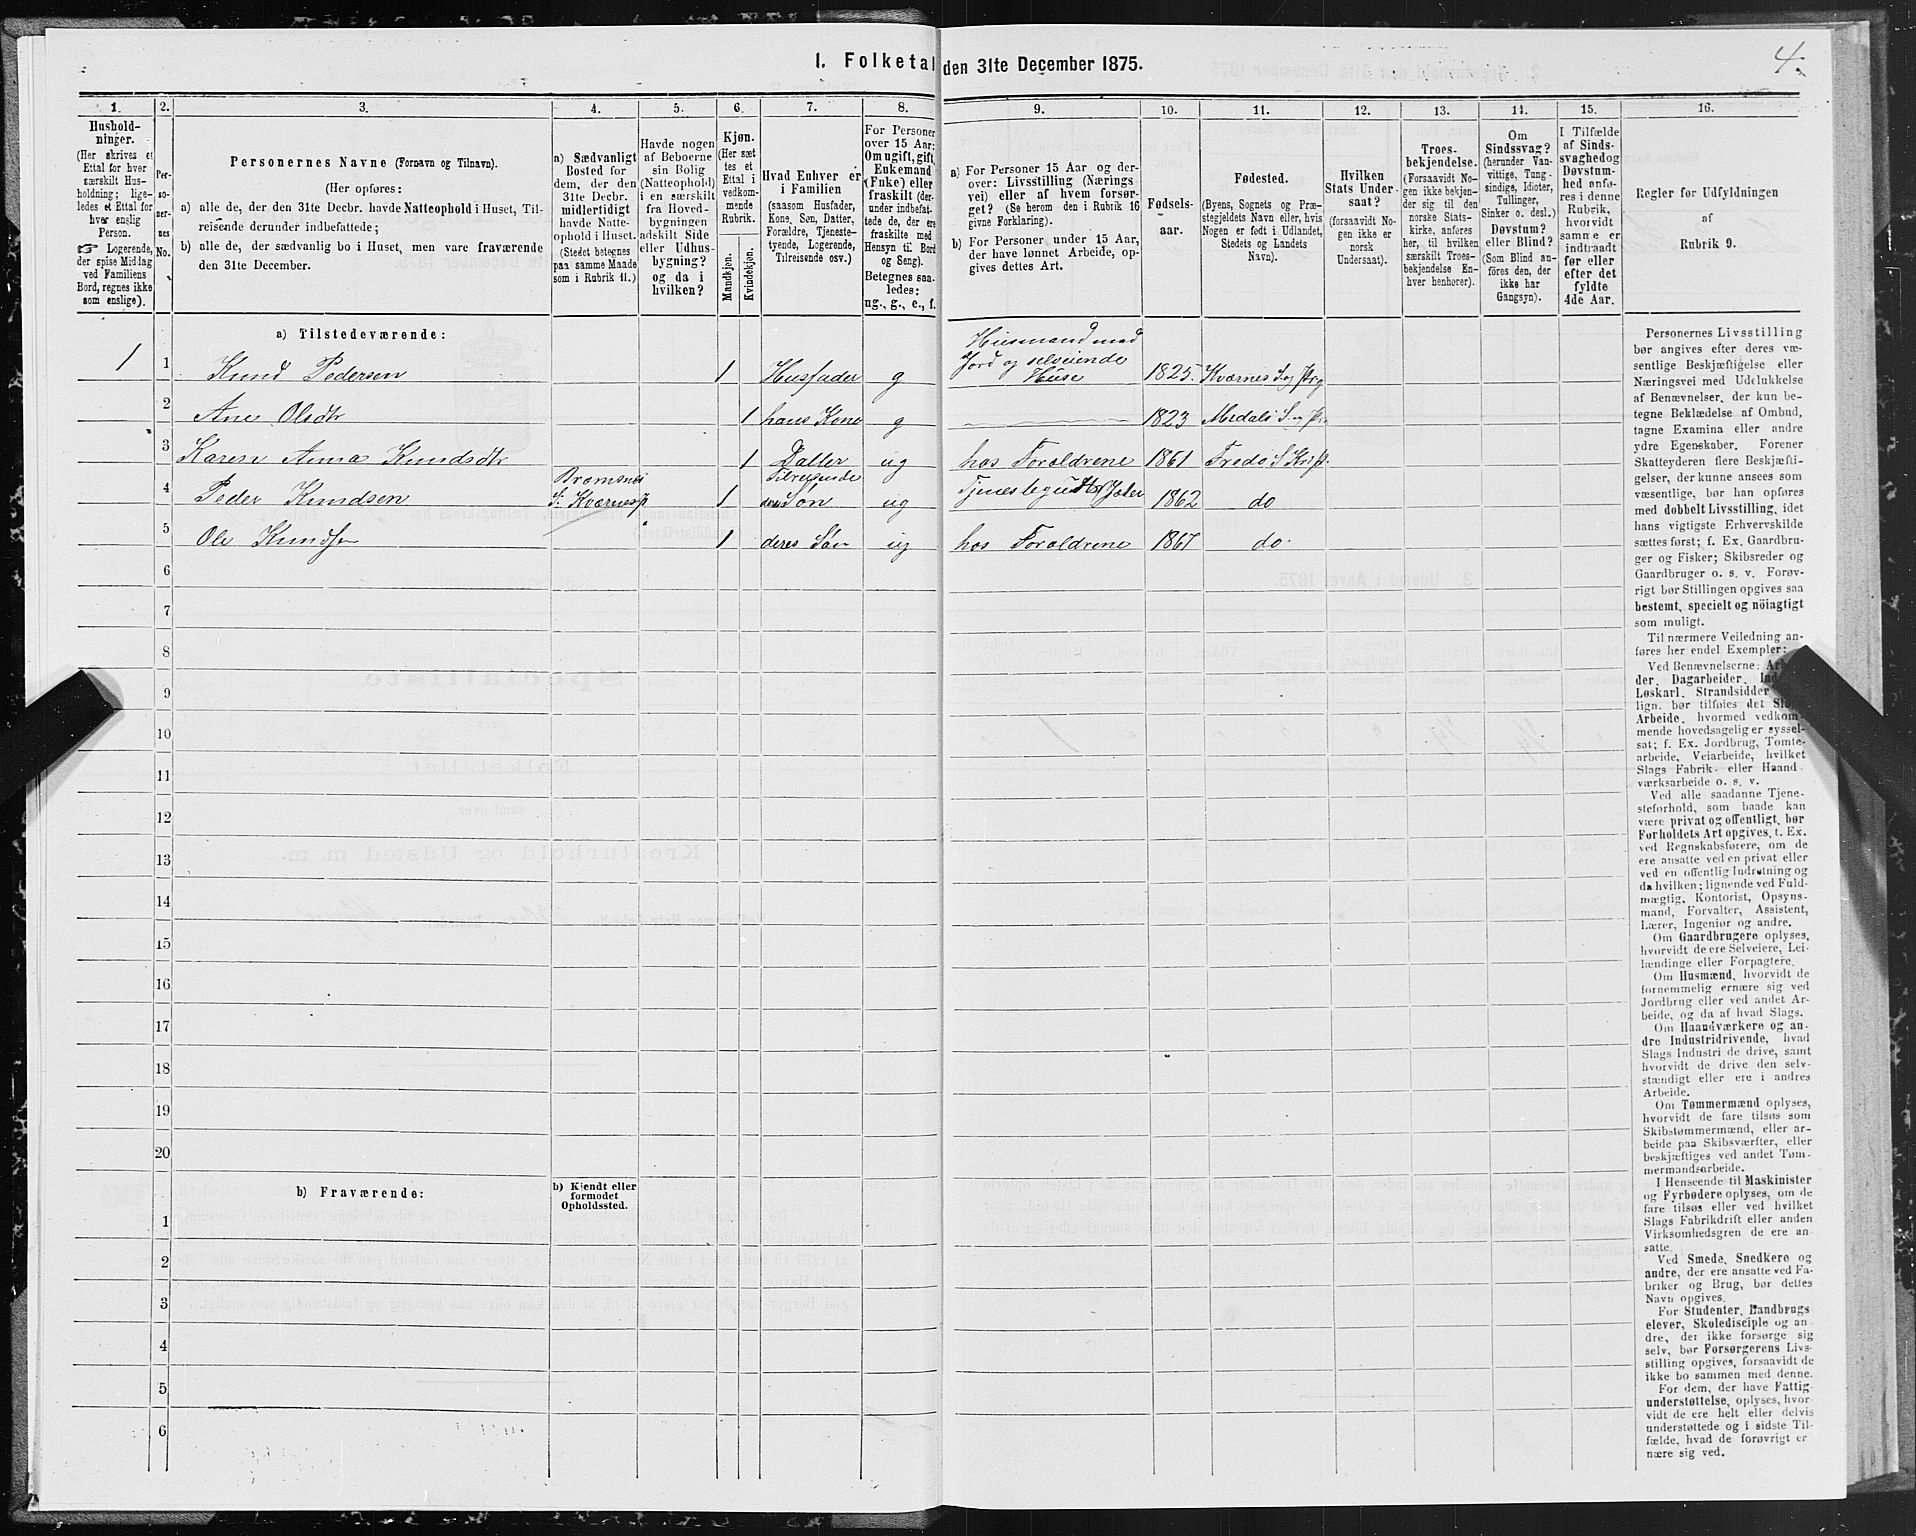 I. Folketal den 31te December 1875.
4.
1.
2.
3.
4.
5.
6.
7.
8.
9.
10.
11.
12.
13.
14.
15.
16.
Hushold-
ninger.
(Her skrives et
Ettal for hver
særskilt Hus-
holdning; lige-
ledes et Ettal for
hver enslig
Person.
☞ Logerende,
der spise Middag
ved Familiens
Bord, regnes ikke
som enslige).
Per-
so-
ner-
nes
No.
Personernes Navne (Fornavn og Tilnavn).
(Her opføres:
a) alle de, der den 31te Decbr. havde Natteophold i Huset, Til-
reisende derunder indbefattede;
b) alle de, der sædvanlig bo i Huset, men vare fraværende
den 31te December.
a) Sædvanligt
Bosted for
dem, der den
31te Decbr.
midlertidigt
havde Natte-
ophold i Huset.
(Stedet betegnes
paa samme Maade
som i Rubrik 11.)
Havde nogen
af Beboerne
sin Bolig
(Natteophold)
i en særskilt
fra Hoved-
bygningen
adskilt Side
eller Udhus-
bygning?
og da i
hvilken?
Kjøn.
(Her sæt
tes et
Ettal i
vedkom-
mende
Rubrik.
Mandkjøn.
Kvindekjøn.
Hvad Enhver er
i Familien
(saasom Husfader,
Kone, Søn, Datter,
Forældre, Tjeneste-
tyende, Logerende,
Tilreisende osv.)
For Personer
over 15 Aar:
Om ugift, gift,
Enkemand
(Enke) eller
fraskilt (der-
under indbefat-
tede de, der ere
fraskilte med
Hensyn til Bord
og Seng).
Betegnes saa-
ledes:
ug., g., e., f.
a) For Personer 15 Aar og der-
over: Livsstilling (Nærings
vei) eller af hvem forsør-
get? (Se herom den i Rubrik 16
givne Forklaring).
b) For Personer under 15 Aar,
der have lønnet Arbeide, op-
gives dettes Art.
Fødsels-
aar.
Fødested.
(Byens, Sognets og Præ-
stegjeldets Navn eller, hvis
Nogen er født i Udlandet,
Stedets og Landets
Navn).
Hvilken
Stats Under-
saat?
(forsaavidt No-
gen ikke er
norsk
Undersaat).
Troes-
bekjendelse.
(Forsaavidt No-
gen ikke bekjen-
der sig til den
norske Stats-
kirke, anføres
her, til hvilken
særskilt Troes-
bekjendelse En-
hver henhører).
Om
Sindssvag?
(herunder Van-
vittige, Tung-
sindige, Idioter,
Tullinger,
Sinker o. desl.)
Døvstum?
eller Blind?
(Som Blind an-
føres den, der
ikke har
Gangsyn).
I Tilfælde
af Sinds-
svaghedog
Døvstum-
hed anfø-
res i denne
Rubrik,
hvorvidt
samme er
indtraadt
før eller
efter det
fyldte
4de Aar.
Regler for Udfyldningen
af
Rubrik 9.
a) Tilstedeværende:
1 1 Knud Pedersen 1 Husfader g Husmand med Jord og selveiende Huse 1825. Kværnes S. og Prg
2 Ane Olsdtr 1 hans Kone g 1823 Medals S. og Pr.
3 Karen Anna Knudsdtr 1 Datter ug hos Foroldrene 1861 Fredø S.
4 Peder Knudsen Bræmsnes S. Kværnesp 1 Tilreisende Søn ug 1862 do
5 Ole Knudsen 1 deres Søn ug hos Foroldrene 1867 do.
6
7
8
9
10
11
12
13
14
15
16
17
18
19
20
b) Fraværende:
b) Kjendt eller
formodet
Opholdssted.
1
2
3
4
5
6
Personernes Livsstilling
bør angives efter deres væ-
sentlige Beskjæftigelse eller
Næringsvei med Udelukkelse
af Benævnelser, der kun be-
tegne Beklædelse af Ombud,
tagne Examina eller andre
ydre Egenskaber. Forener
Skatteyderen flere Beskjæfti-
gelser, der kunne ansees som
væsentlige, bør han opføres
med dobbelt Livsstilling, idet
hans vigtigste Erhvervskilde
sættes først; f. Ex. Gaardbru-
ger og Fisker; Skibsreder og
Gaardbruger o. s. v. Forøv-
rigt bør Stillingen opgives saa
bestemt, specielt og nöiagtigt
som muligt.
Til nærmere Veiledning an-
føres her endel Exempler:
Ved Benævnelserne:
der, Dagarbeider,
Løskarl, Strandsidder
lign. bør tilføies det
Arbeide, hvormed vedkom-
mende hovedsagelig er syssel-
sat; f. Ex. Jordbrug, Tomte-
arbeide, Veiarbeide, hvilket
Slags Fabrik- eller Haand-
værksarbeide o. s. v.
Ved alle saadanne Tjene-
steforhold, som baade kan
være privat og offentligt, bør
Forholdets Art opgives, t. Ex.
ved Regnskabsførere, om de
ere ansatte ved en privat eller
ved en offentlig Indretning og
da hvilken; lignende ved Fuld-
mægtig, Kontorist, Opsyns-
mand, Forvalter, Assistent,
Lærer, Ingeniør og andre.
Om Gaardbrugere oplyses,
hvorvidt de ere Selveiere, Lei-
lændinge eller Forpagtere.
Om Husmænd, hvorvidt de
fornemmelig ernære sig ved
Jordbrug eller ved andet Ar-
beide, og da af hvad Slags.
Om Haandværkere og an-
dre Industridrivende, hvad
Slags Industri de drive, samt
hvorvidt de drive den selv-
stændigt eller ere i andres
Arbeide.
Om Tømmermænd oplyses,
hvorvidt de fare tilsøs som
Skibstømmermænd, eller ar-
beide paa Skibsværfter, eller
beskjæftiges ved andet Tøm-
mermandsarbeide.
I Henseende til Maskinister
og Fyrbødere oplyses, om de
fare tilsøs eller ved hvilket
Slags Fabrikdrift eller anden
Virksomhedsgren de ere an-
satte.
Ved Smede, Snedkere og
andre, der ere ansatte ved Fa-
briker og Brug, bør dettes
Navn opgives.
For Studenter, Landbrugs-
elever, Skoledisciple og an-
dre, der ikke forsørge sig
selv, bør Forsørgerens Livs-
stilling opgives, forsaavidt de
ikke bo sammen med denne.
For dem, der have Fattig-
understøttelse, oplyses, hvor-
vidt de ere helt eller delvis
understøttede og i sidste Til-
fælde, hvad de forøvrigt er
nære sig ved.